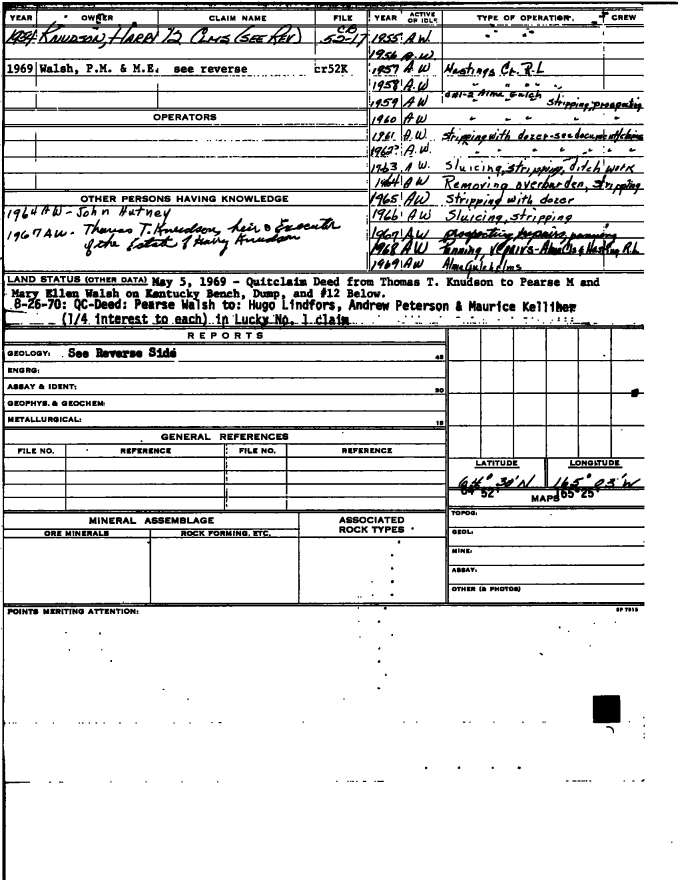 YEAR OWNER CLAIM NAME FILE YEAR ACTIVE OR IDLE TYPE OF OPERATION. CREW
KNUDSON, HARRY 12 CLMS (SEE REV) 52-17 1955 A.W. " " "
1956 A.W.
1969 Walsh, P.M. & M.E. see reverse cr52K 1957 A.W Hastings Cr. R.L
1958 A.W " " " "
1959 AW Alma Gulch Stripping, prospecting
OPERATORS 1960 AW " " " "
1961 A.W. Stripping with dozer-see document
1962? A.W. " " " "
1963 A W. Sluicing, stripping, ditch work
1964 A W Removing overburden, stripping
OTHER PERSONS HAVING KNOWLEDGE 1965 AW Stripping with dozer
1964 AW - John Hutney 1966 AW Sluicing, stripping
1967 AW - Thomas T. Knudson, heir & Executor 1967 AW prospecting, repairs, panning
of the Estate of Harry Knudson 1968 AW Panning
1969 AW Alma Gulch
LAND STATUS (OTHER DATA) May 5, 1969 - Quitclaim Deed from Thomas T. Knudson to Pearse M and
Mary Ellen Walsh on Kantucky Bench, Dump, and #12 Below.
8-26-70: QC-Deed: Pearse Walsh to: Hugo Lindfors, Andrew Peterson & Maurice Kelliher
(1/4 interest to each) in Lucky No. 1 claim
REPORTS
GEOLOGY: See Reverse Side 45
ENGRG:
ASSAY & IDENT: 30
GEOPHYS. & GEOCHEM:
METALLURGICAL: 15
GENERAL REFERENCES
FILE NO. REFERENCE FILE NO. REFERENCE
LATITUDE LONGITUDE
64° 30' N 165° 03' W
64° 52' MAPS 165° 25'
MINERAL ASSEMBLAGE ASSOCIATED ROCK TYPES
ORE MINERALS ROCK FORMING, ETC.
TOPOG:
GEOL:
MINE:
ASSAY:
OTHER (& PHOTOS)
POINTS MERITING ATTENTION: SP 7915